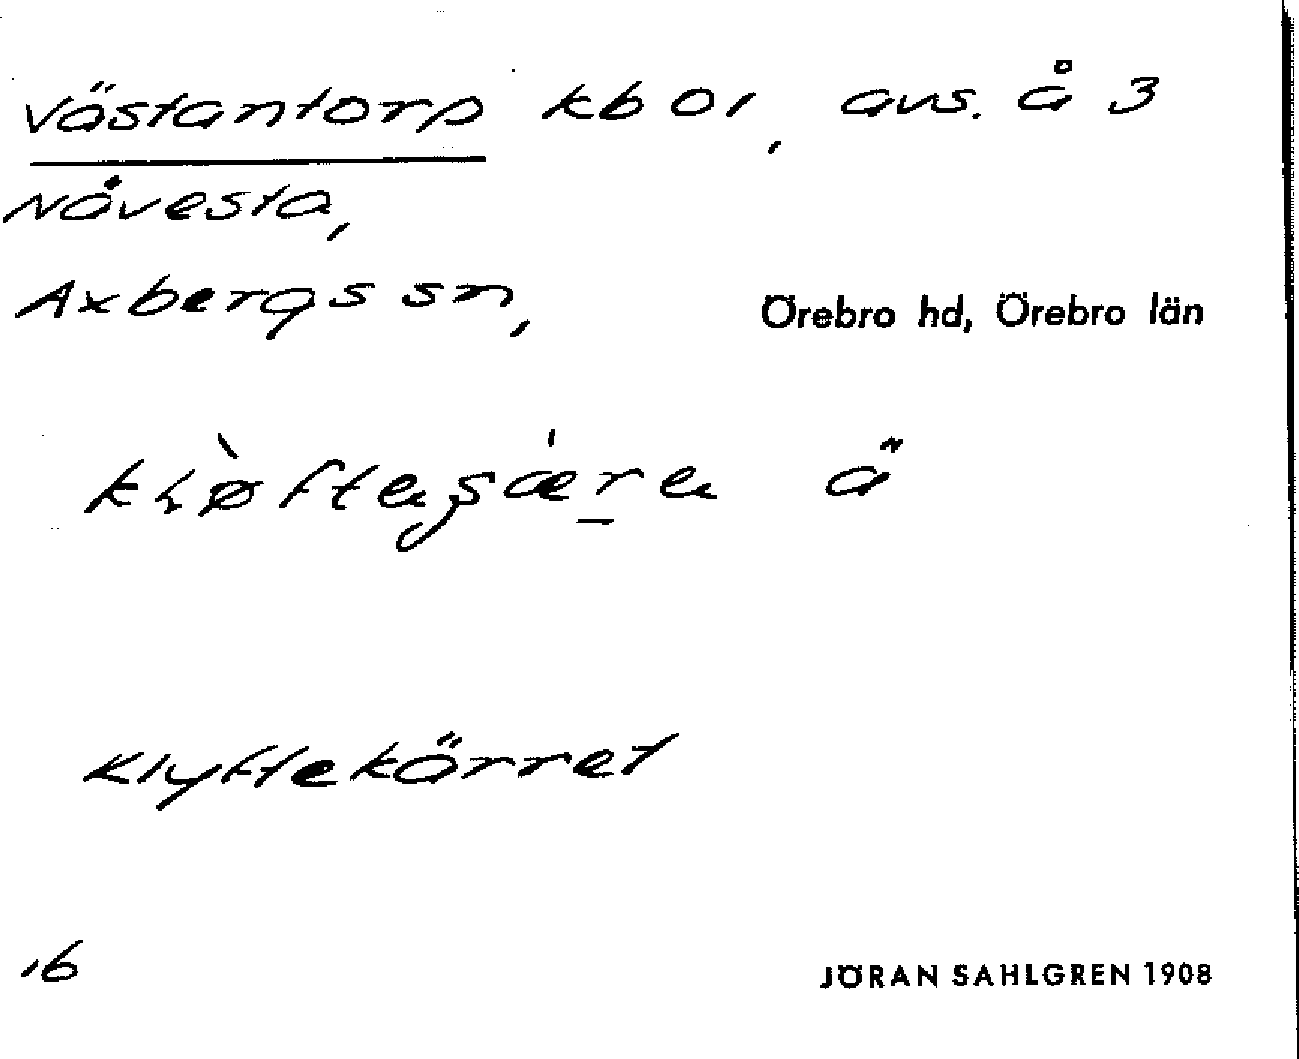 Västantorp kb 01, avs. å 3
Nåvesta,
Axbergs sn, Örebro hd, Örebro län
å
Klyftekärret
16
JÖRAN SAHLGREN 1908